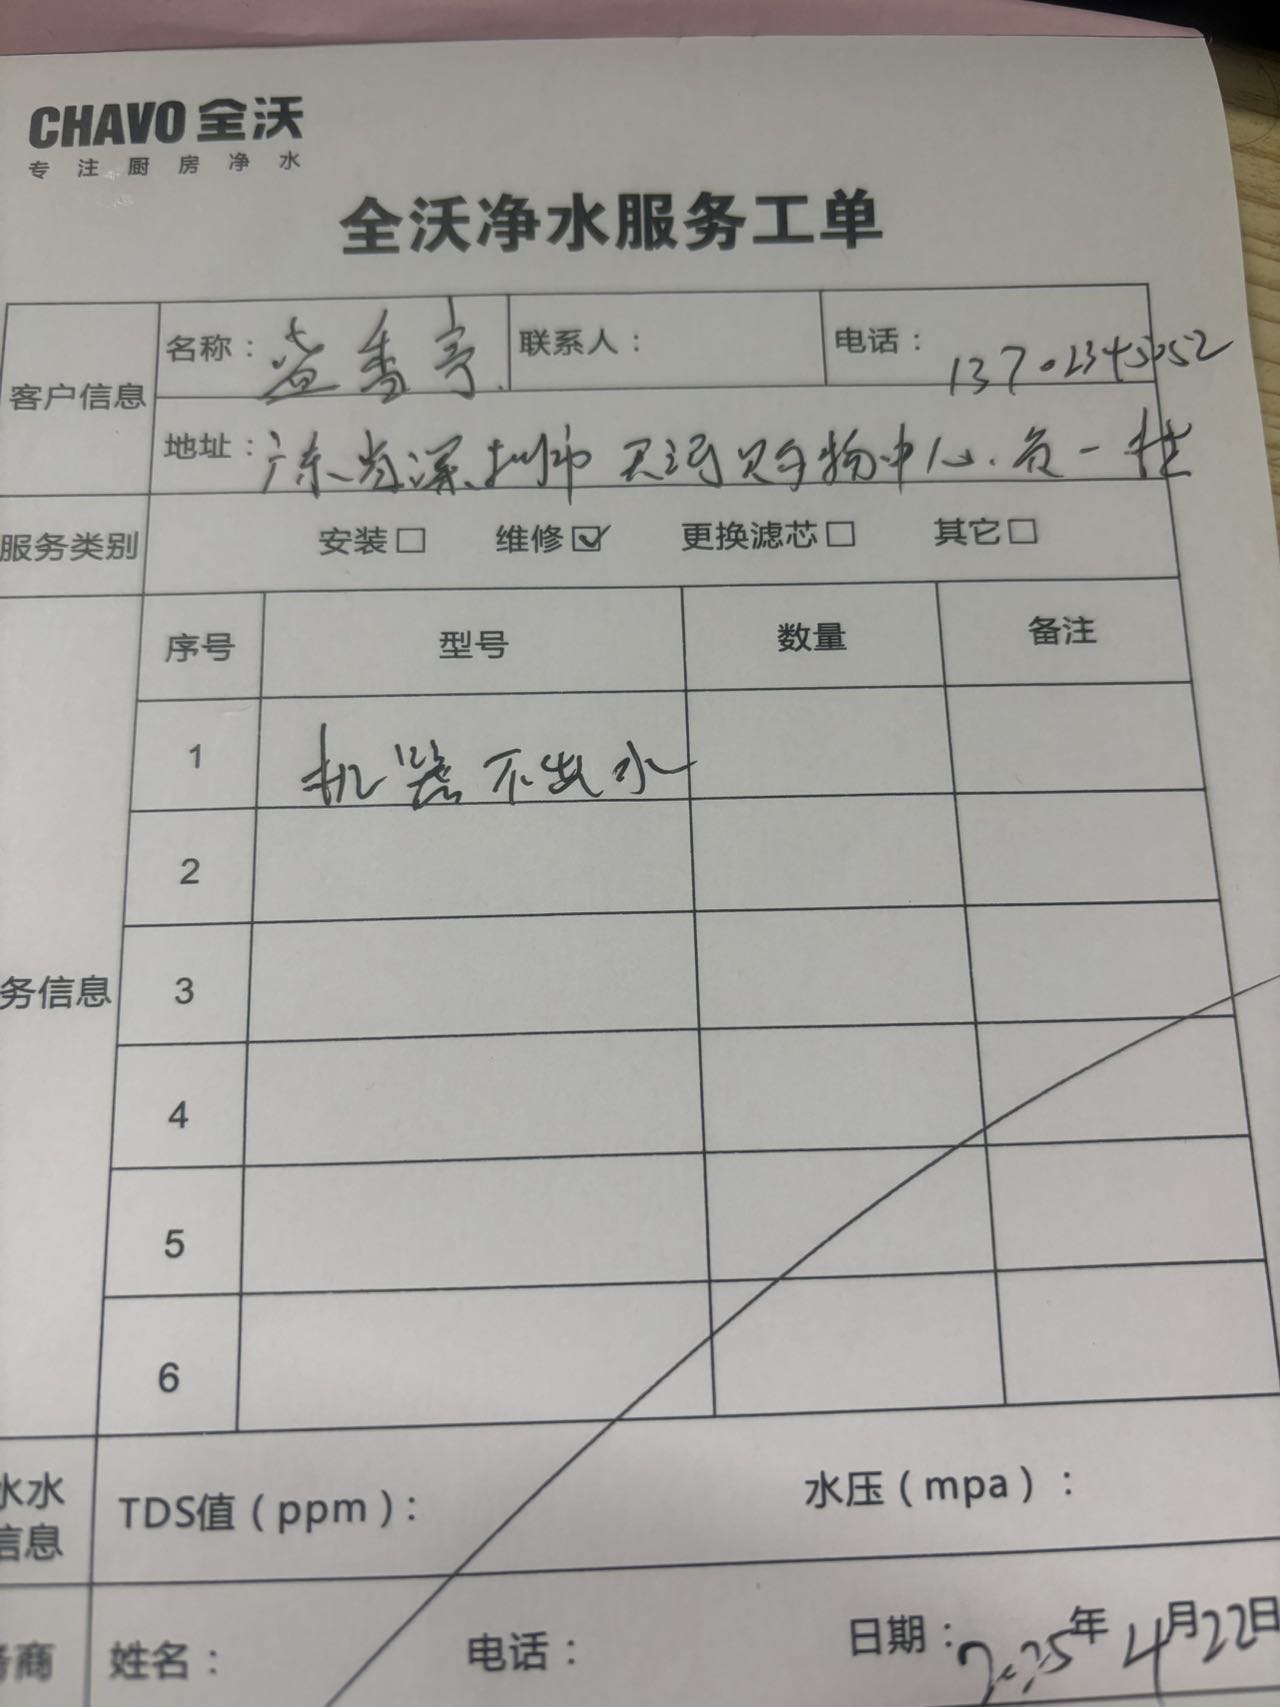 CHAVO 全沃
专注厨房净水
全沃净水服务工单
客户信息 名称：益香亭 联系人： 电话：13702345052
地址：广东省深圳市天河购物中心负一楼
服务类别 安装□ 维修☑ 更换滤芯□ 其它□
务信息 序号 型号 数量 备注
1 机器不出水
2
3
4
5
6
水水
信息 TDS值（ppm）： 水压（mpa）：
商 姓名： 电话： 日期：2025年4月22日